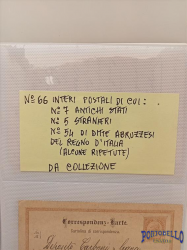 Nº 66 INTERI POSTALI DI CUI:
Nº 7 ANTICHI STATI
Nº 5 STRANIERI
Nº 54 DI DITTE ABRUZZESI
DEL REGNO D'ITALIA
(ALCUNE RIPETUTE)
DA COLLEZIONE
Correspondenz-Karte.
PORTOBELLO